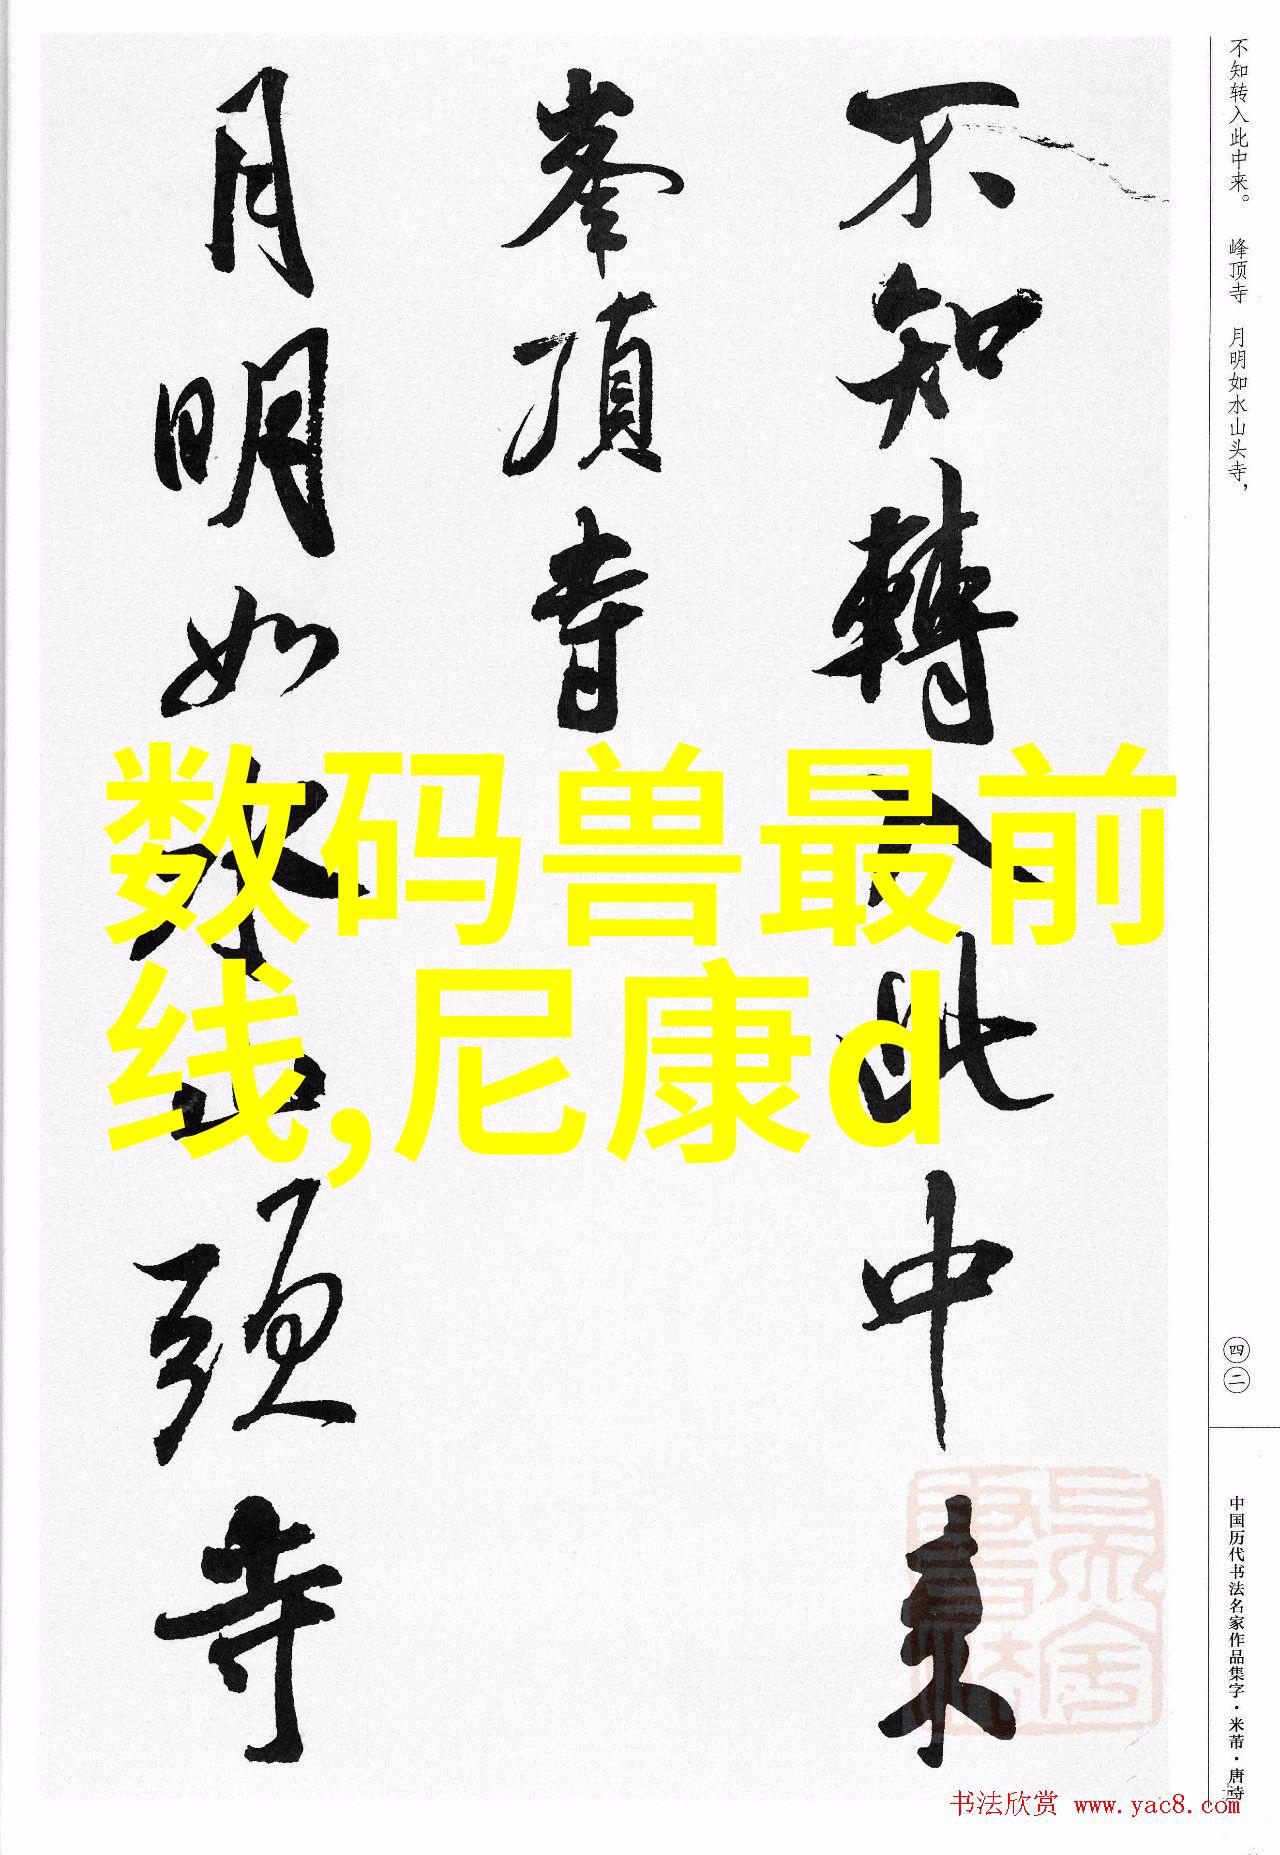 不知轉入此中来
峯頂寺
月明如水山頭寺
数码兽最前
线,尼康d
不知转入此中来。 峰顶寺 月明如水山头寺，
四二
中国历代书法名家作品集字·米芾·唐诗
书法欣赏 www.yac8.com